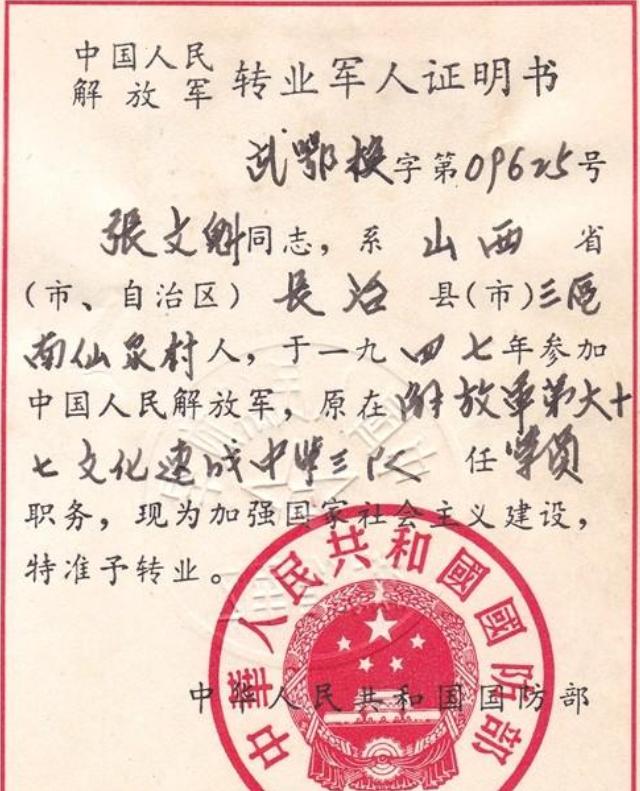 中国人民
解放军
转业军人证明书
武鄂换字第09625号
張文魁同志，系山西省
（市、自治区）長治县（市）三区
南仙泉村人，于一九四七年参加
中国人民解放军，原在解放軍第六十
七文化速成中学三队 任学员
职务，现为加强国家社会主义建设，
特准予转业。
中华人民共和国国防部
中華人民共和國國防部